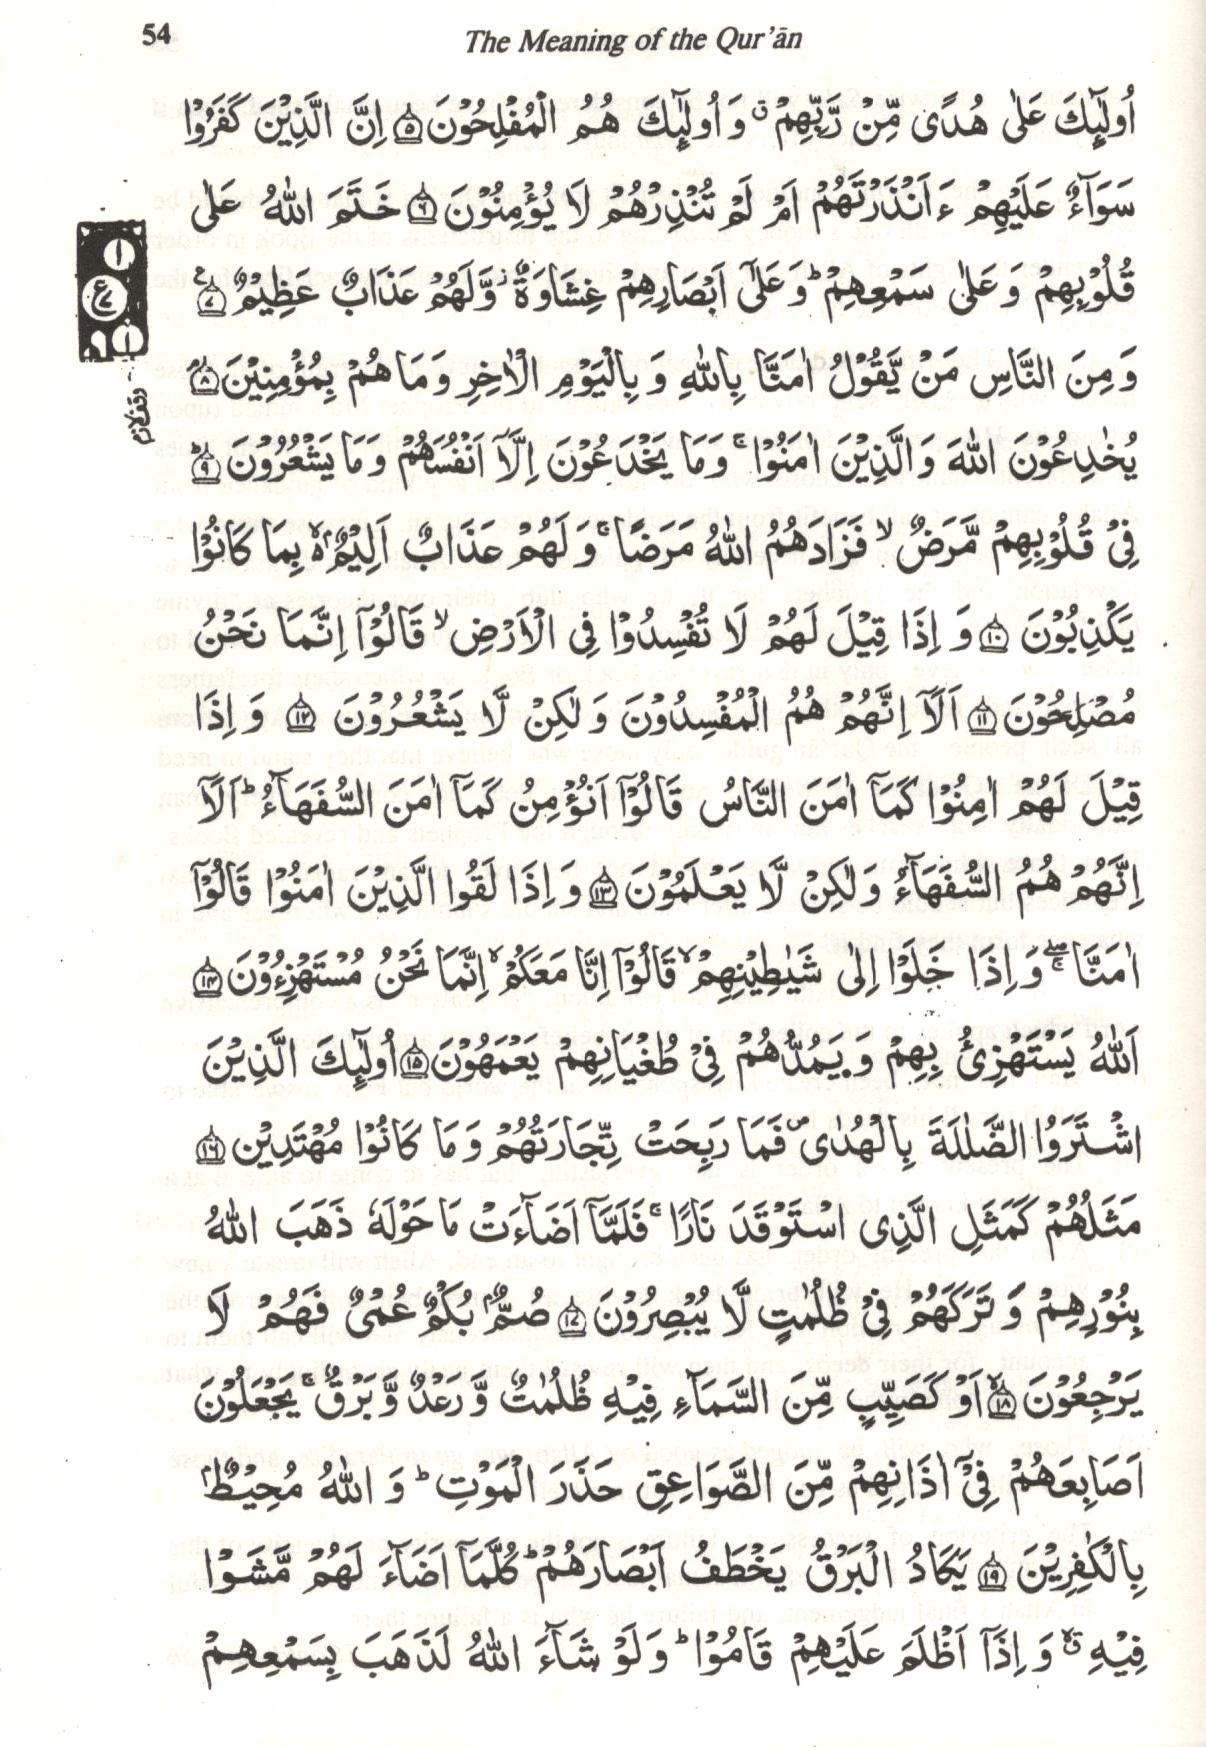 54
The Meaning of the Qur'ān
اُولٰٓئِكَ عَلٰى هُدًى مِّنْ رَّبِّهِمْ ۙ وَ اُولٰٓئِكَ هُمُ الْمُفْلِحُوْنَ ۝۵ اِنَّ الَّذِيْنَ كَفَرُوْا
سَوَآءٌ عَلَيْهِمْ ءَاَنْذَرْتَهُمْ اَمْ لَمْ تُنْذِرْهُمْ لَا يُؤْمِنُوْنَ ۝۶ خَتَمَ اللهُ عَلٰى
قُلُوْبِهِمْ وَ عَلٰى سَمْعِهِمْ ؕ وَ عَلٰٓى اَبْصَارِهِمْ غِشَاوَةٌ ؗ وَّ لَهُمْ عَذَابٌ عَظِيْمٌ ۝۷
وَ مِنَ النَّاسِ مَنْ يَّقُوْلُ اٰمَنَّا بِاللهِ وَ بِالْيَوْمِ الْاٰخِرِ وَ مَا هُمْ بِمُؤْمِنِيْنَ ۝۸
يُخٰدِعُوْنَ اللهَ وَ الَّذِيْنَ اٰمَنُوْا ۚ وَ مَا يَخْدَعُوْنَ اِلَّآ اَنْفُسَهُمْ وَ مَا يَشْعُرُوْنَ ۝۹
فِيْ قُلُوْبِهِمْ مَّرَضٌ ۙ فَزَادَهُمُ اللهُ مَرَضًا ۚ وَ لَهُمْ عَذَابٌ اَلِيْمٌۢ ۙ بِمَا كَانُوْا
يَكْذِبُوْنَ ۝۱۰ وَ اِذَا قِيْلَ لَهُمْ لَا تُفْسِدُوْا فِي الْاَرْضِ ۙ قَالُوْٓا اِنَّمَا نَحْنُ
مُصْلِحُوْنَ ۝۱۱ اَلَآ اِنَّهُمْ هُمُ الْمُفْسِدُوْنَ وَ لٰكِنْ لَّا يَشْعُرُوْنَ ۝۱۲ وَ اِذَا
قِيْلَ لَهُمْ اٰمِنُوْا كَمَآ اٰمَنَ النَّاسُ قَالُوْٓا اَنُؤْمِنُ كَمَآ اٰمَنَ السُّفَهَآءُ ؕ اَلَآ
اِنَّهُمْ هُمُ السُّفَهَآءُ وَ لٰكِنْ لَّا يَعْلَمُوْنَ ۝۱۳ وَ اِذَا لَقُوا الَّذِيْنَ اٰمَنُوْا قَالُوْٓا
اٰمَنَّا ۚۖ وَ اِذَا خَلَوْا اِلٰى شَيٰطِيْنِهِمْ ۙ قَالُوْٓا اِنَّا مَعَكُمْ ۙ اِنَّمَا نَحْنُ مُسْتَهْزِءُوْنَ ۝۱۴
اَللهُ يَسْتَهْزِئُ بِهِمْ وَ يَمُدُّهُمْ فِيْ طُغْيَانِهِمْ يَعْمَهُوْنَ ۝۱۵ اُولٰٓئِكَ الَّذِيْنَ
اشْتَرَوُا الضَّلٰلَةَ بِالْهُدٰى ۪ فَمَا رَبِحَتْ تِّجَارَتُهُمْ وَ مَا كَانُوْا مُهْتَدِيْنَ ۝۱۶
مَثَلُهُمْ كَمَثَلِ الَّذِى اسْتَوْقَدَ نَارًا ۚ فَلَمَّآ اَضَآءَتْ مَا حَوْلَهٗ ذَهَبَ اللهُ
بِنُوْرِهِمْ وَ تَرَكَهُمْ فِيْ ظُلُمٰتٍ لَّا يُبْصِرُوْنَ ۝۱۷ صُمٌّۢ بُكْمٌ عُمْيٌ فَهُمْ لَا
يَرْجِعُوْنَ ۝۱۸ اَوْ كَصَيِّبٍ مِّنَ السَّمَآءِ فِيْهِ ظُلُمٰتٌ وَّ رَعْدٌ وَّ بَرْقٌ ۚ يَجْعَلُوْنَ
اَصَابِعَهُمْ فِيْٓ اٰذَانِهِمْ مِّنَ الصَّوَاعِقِ حَذَرَ الْمَوْتِ ؕ وَ اللهُ مُحِيْطٌۢ
بِالْكٰفِرِيْنَ ۝۱۹ يَكَادُ الْبَرْقُ يَخْطَفُ اَبْصَارَهُمْ ؕ كُلَّمَآ اَضَآءَ لَهُمْ مَّشَوْا
فِيْهِ ۙۗ وَ اِذَآ اَظْلَمَ عَلَيْهِمْ قَامُوْا ؕ وَ لَوْ شَآءَ اللهُ لَذَهَبَ بِسَمْعِهِمْ
۱
ع
۱
وقف لازم